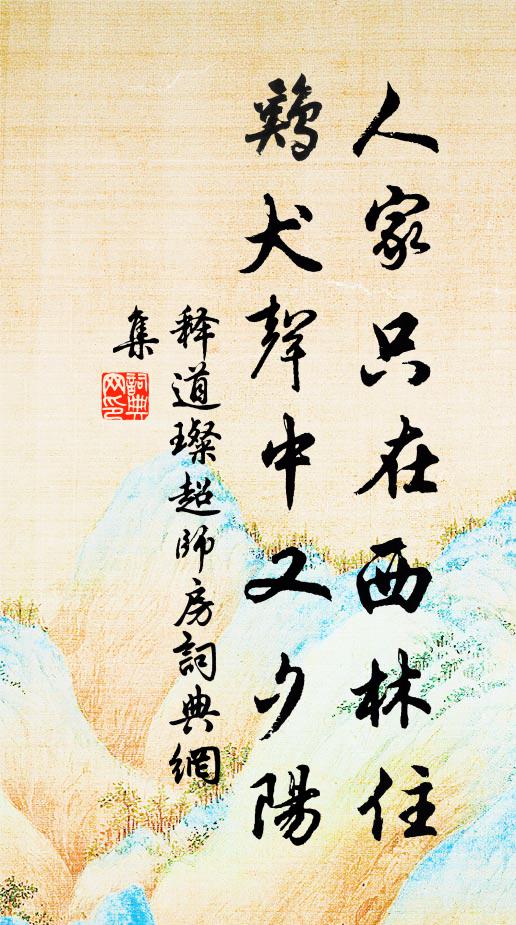 人家只在西林住
鷄犬聲中又夕陽
释道璨超師房詞典網
集
詞典網印